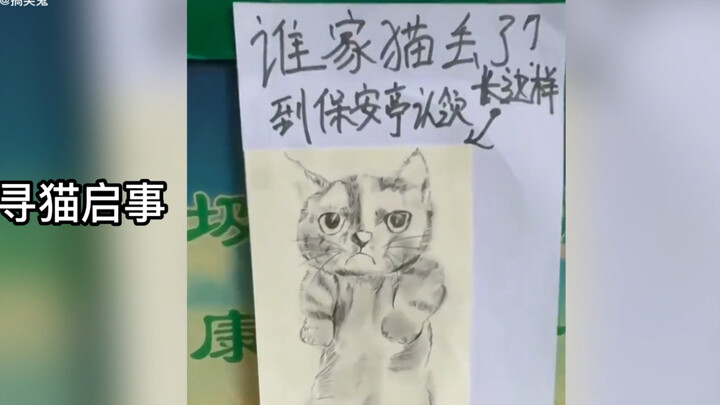 @搞笑鬼
谁家猫丢了?
到保安亭认领
长这样
寻猫启事
圾
康